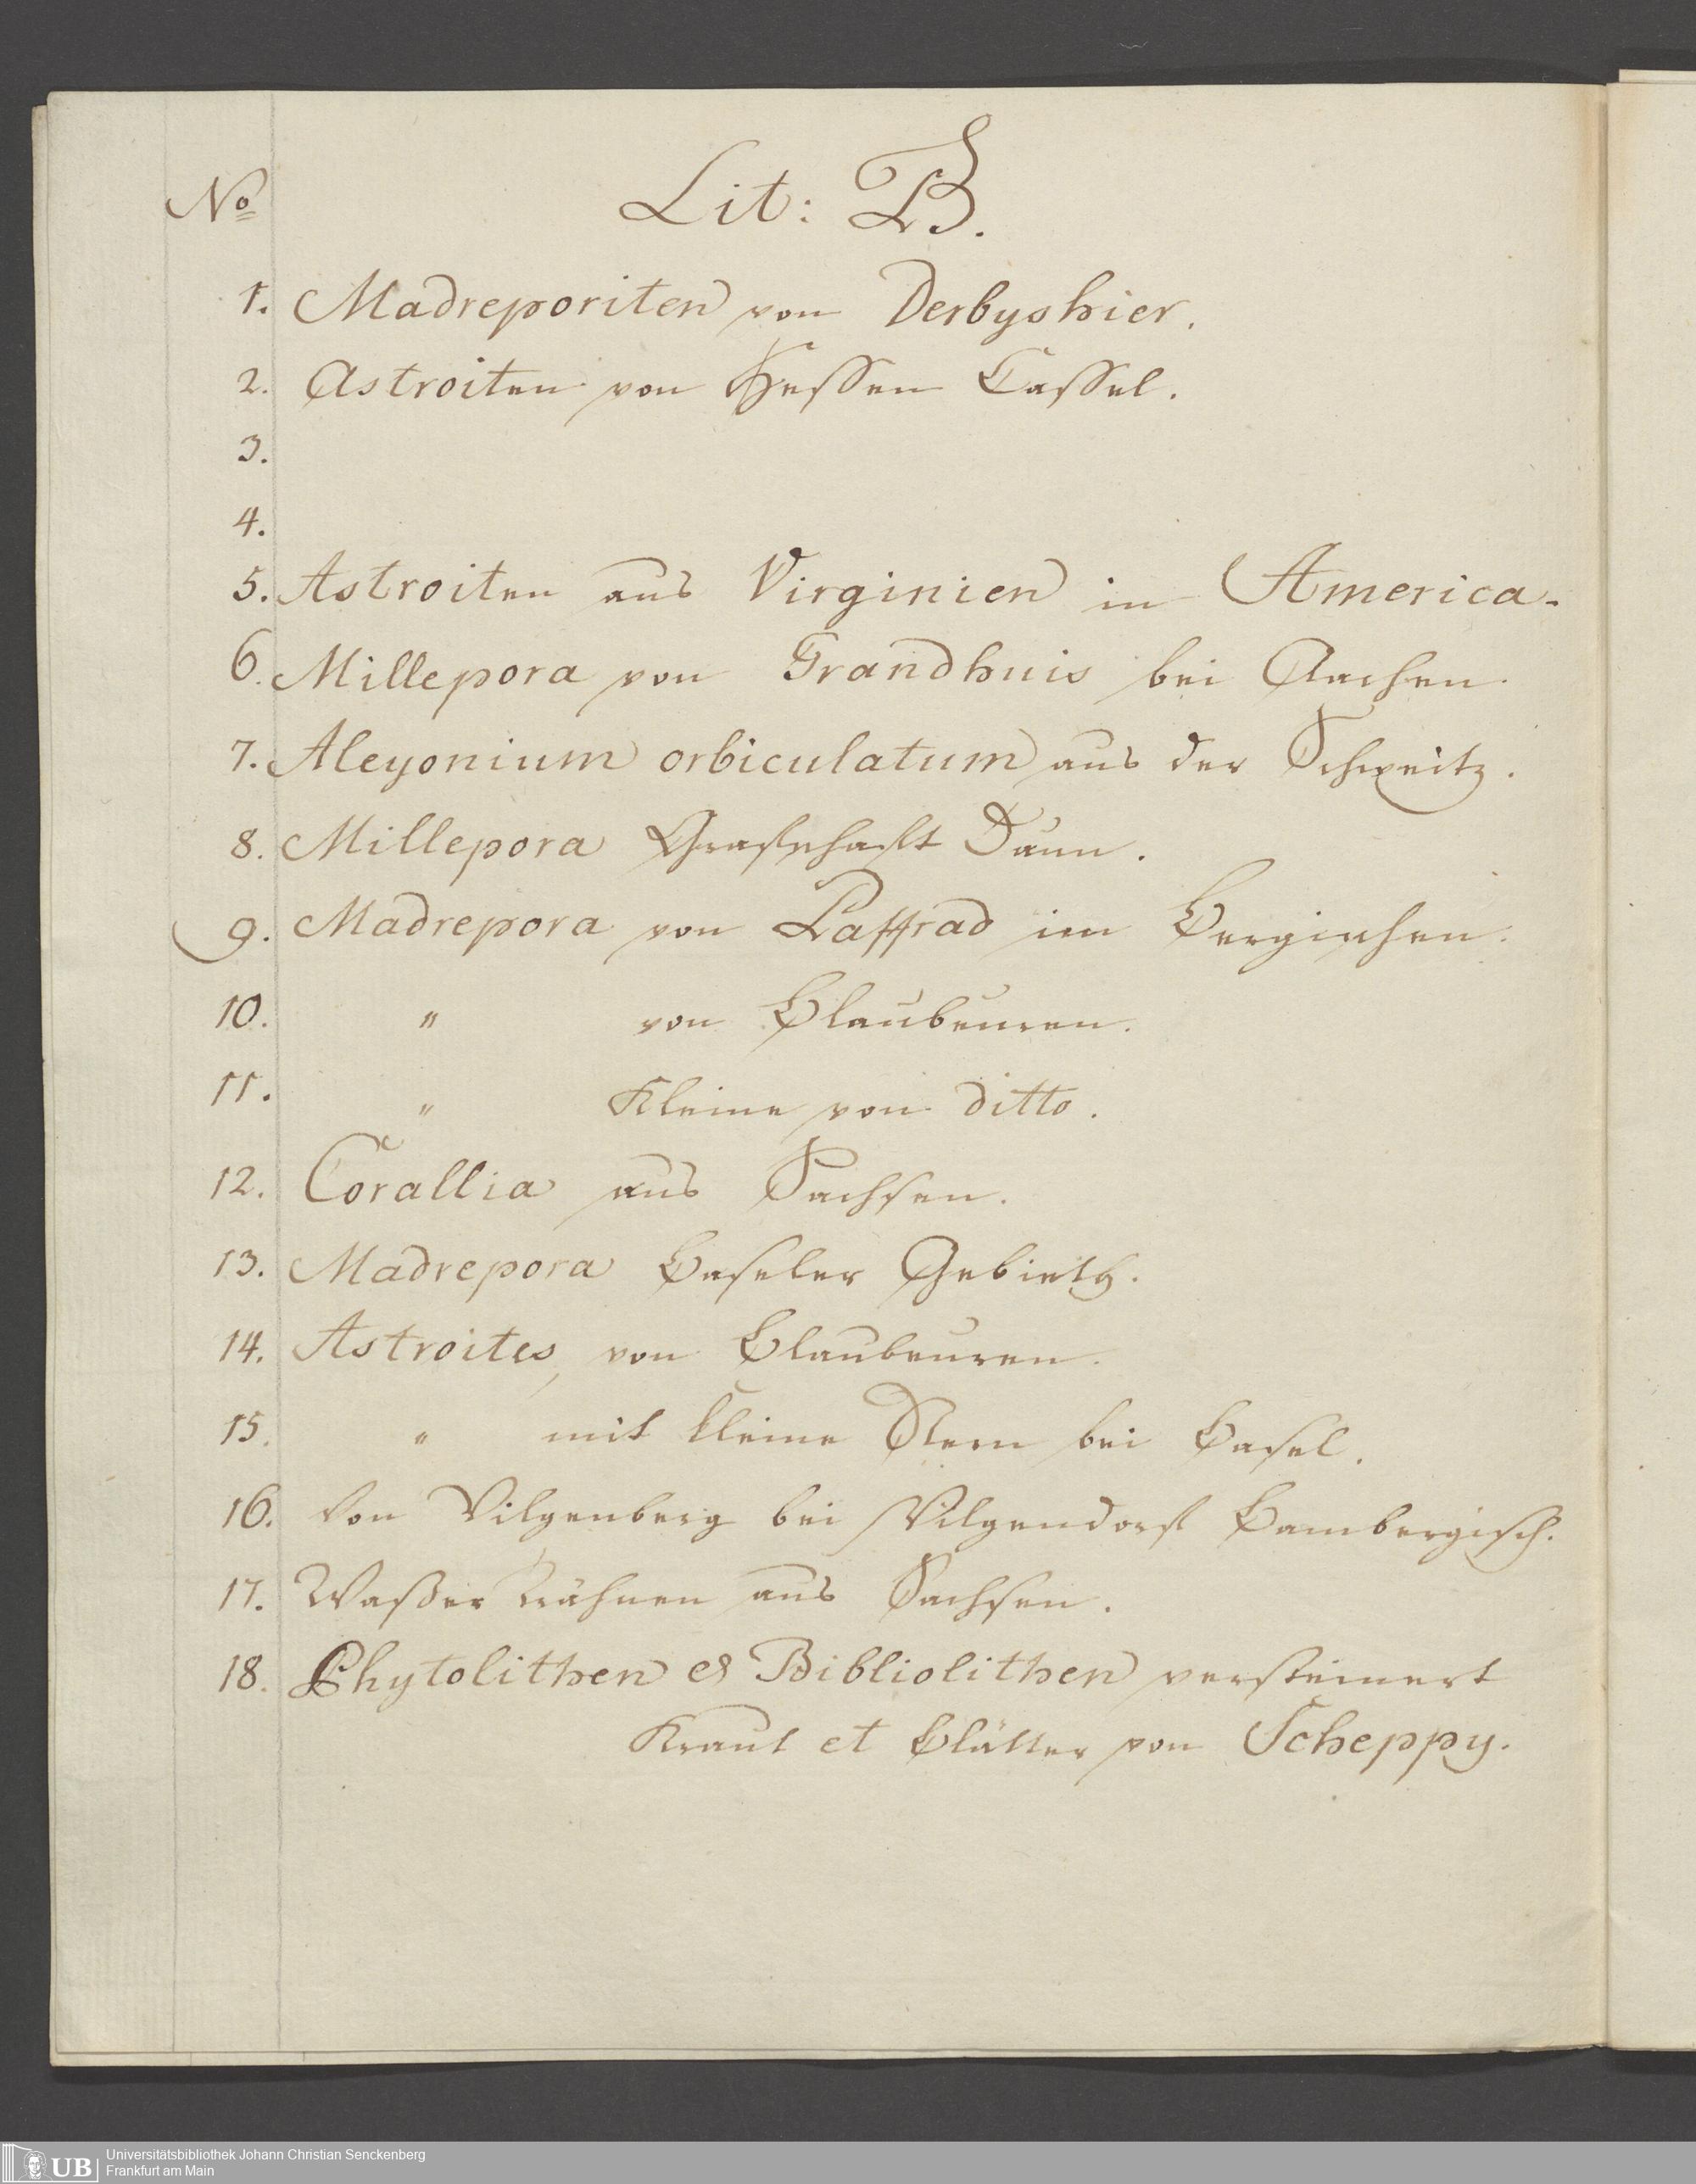 No
Lit: B.
1. Madreporiten von Derbyshier.
2. Astroiten von Hessen Cassel.
3.
4.
5. Astroiten aus Virginien in America.
6. Millepora von Grandhuis bei Aachen.
7. Aleyonium orbiculatum aus der Schweitz.
8. Millepora Grafschaft Daun.
9. Madrepora von Paffrad im Bergischen.
10. " von Blaubeuren.
11. " Kleine von ditto.
12. Corallia aus Sachsen.
13. Madrepora Baseler Gebieth.
14. Astroites, von Blaubeuren.
15. " mit kleine Stern bei Basel.
16. Von Vilgenberg bei Wilgendorf Bambergisch.
17. Waßer aus Sachsen.
18. Phytolithen et Bibliolithen versteinert
Kraut et Blätter von Scheppy.
UB
Universitätsbibliothek Johann Christian Senckenberg
Frankfurt am Main